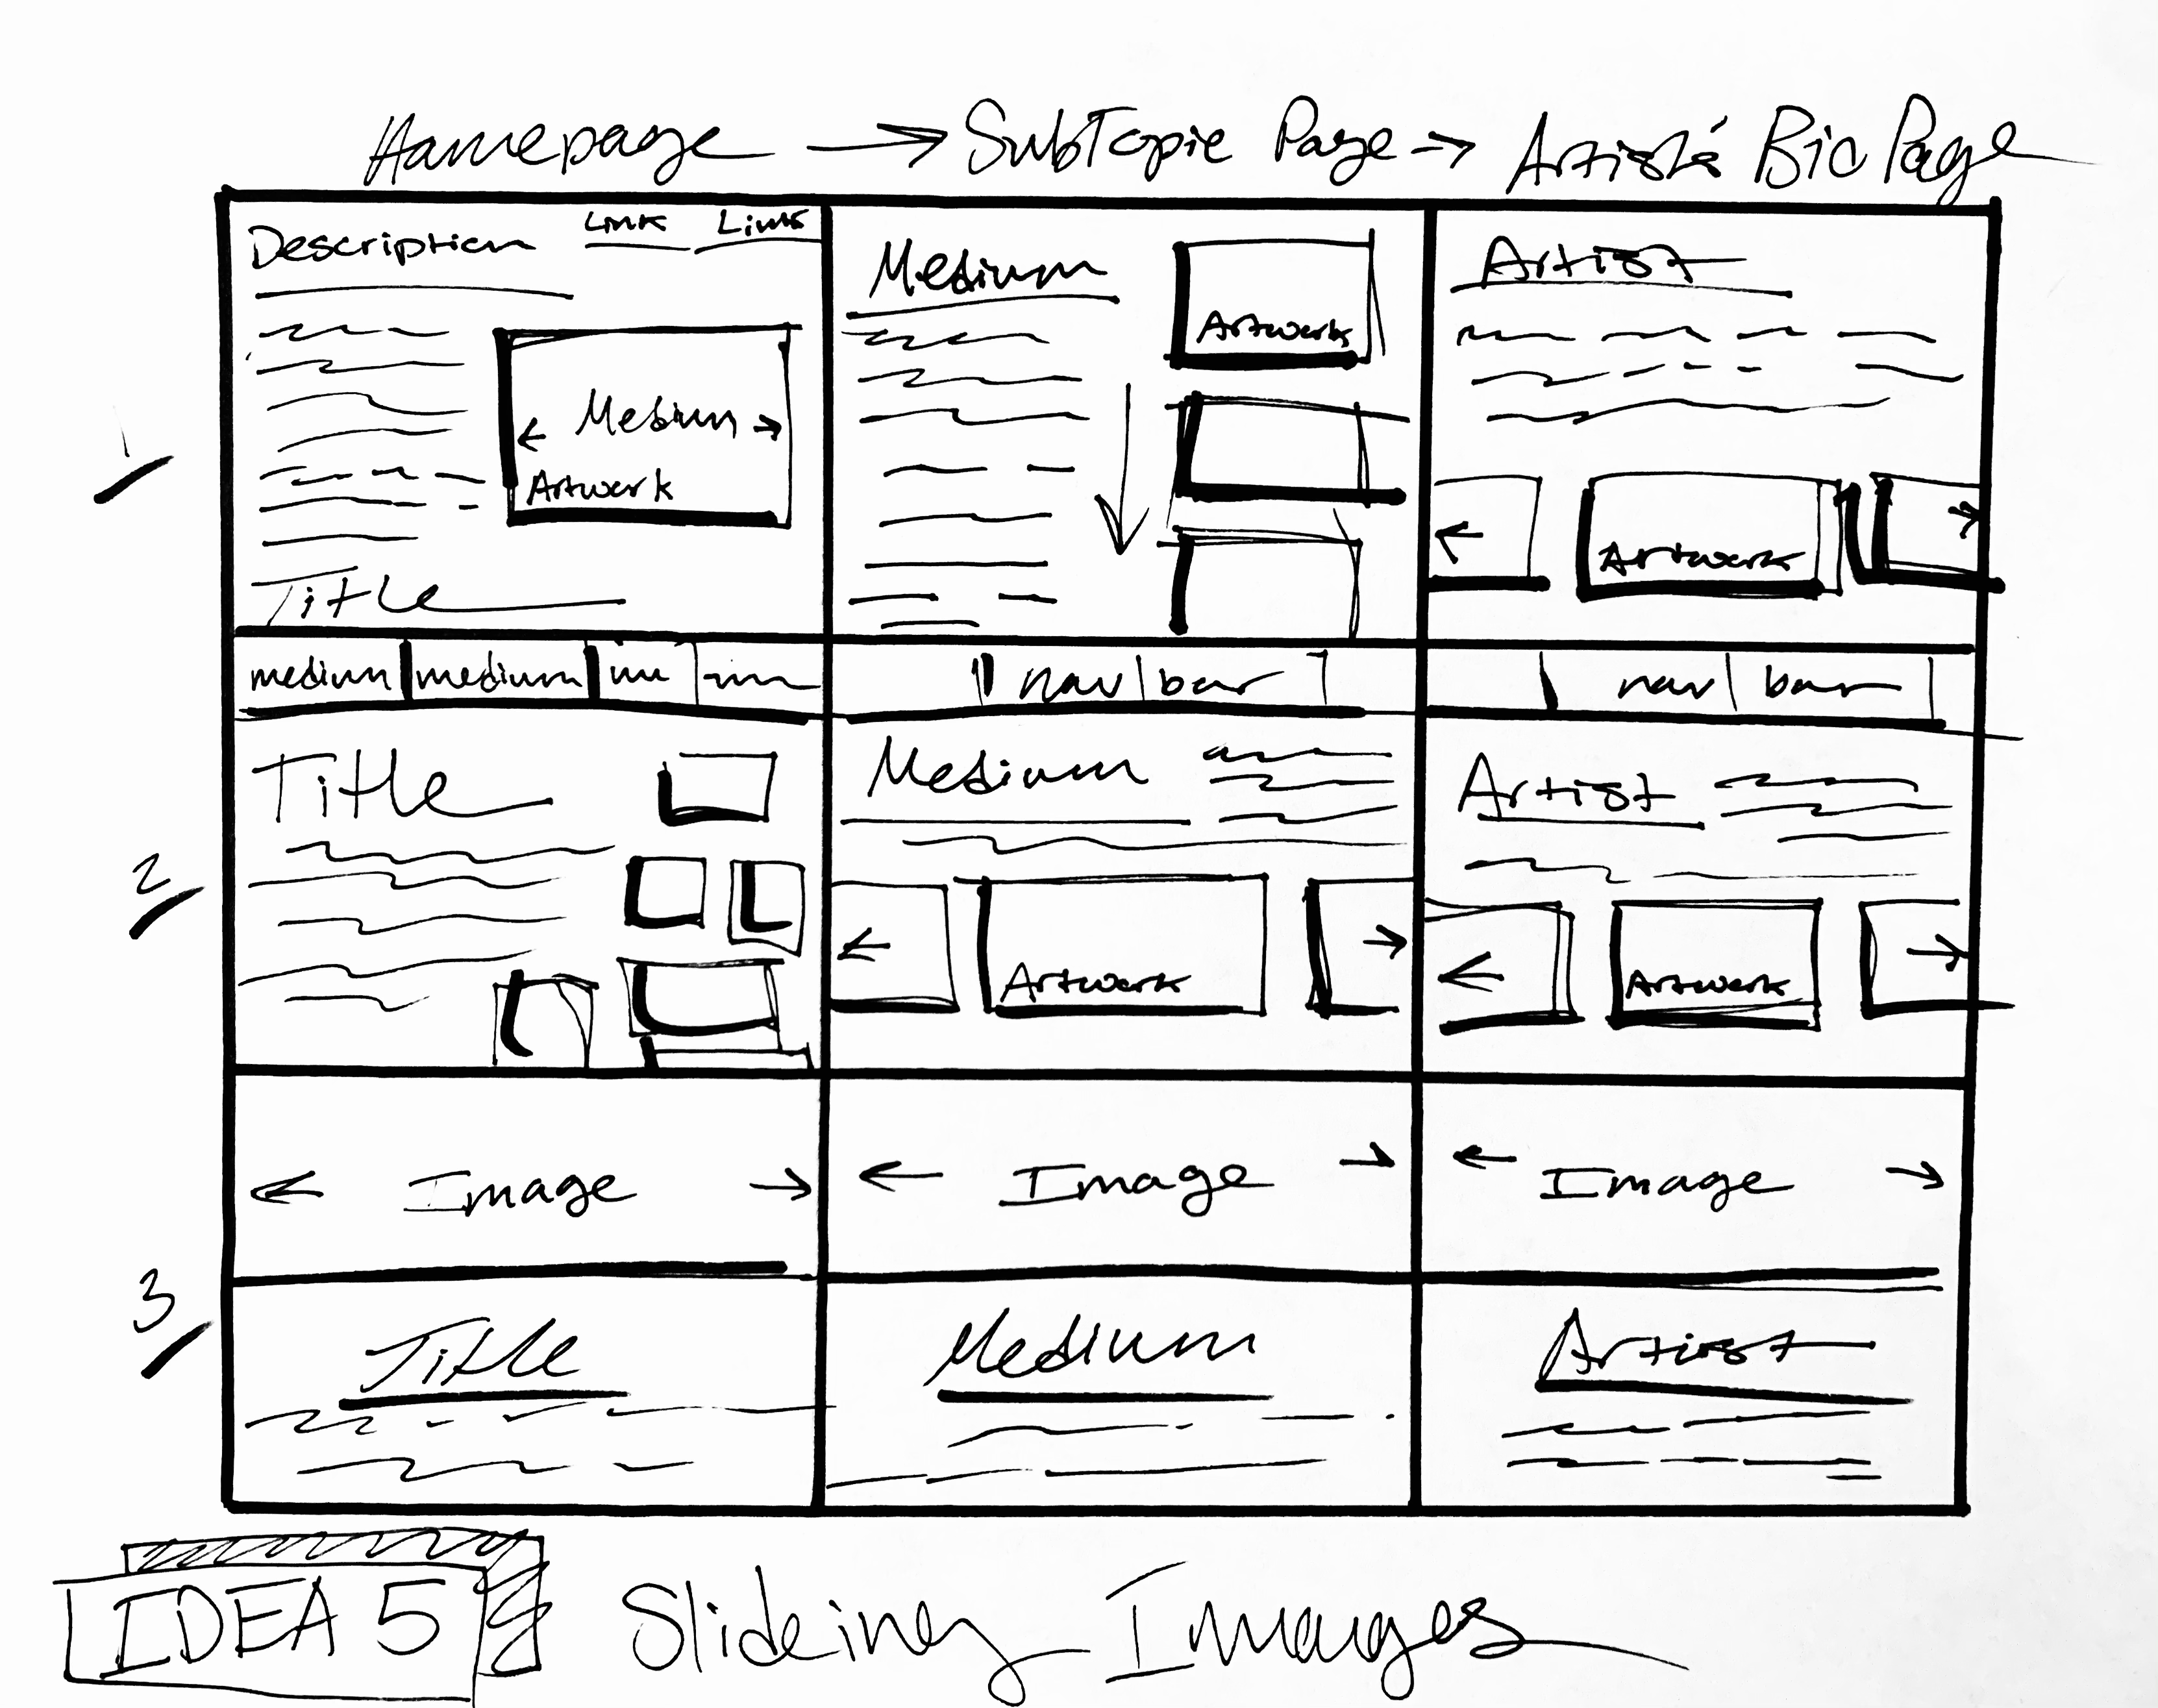 Homepage → SubTopic Page → Artist's Bio Page
1
Description Link Link
← Medium →
Artwork
Title
Medium
Artwork
Artist
← Artwork →
2
medium medium
nav bar
nav bar
Title
Medium
← Artwork →
Artist
← Artwork →
3
← Image →
← Image →
← Image →
Title
Medium
Artist
IDEA 5 Slideing Images